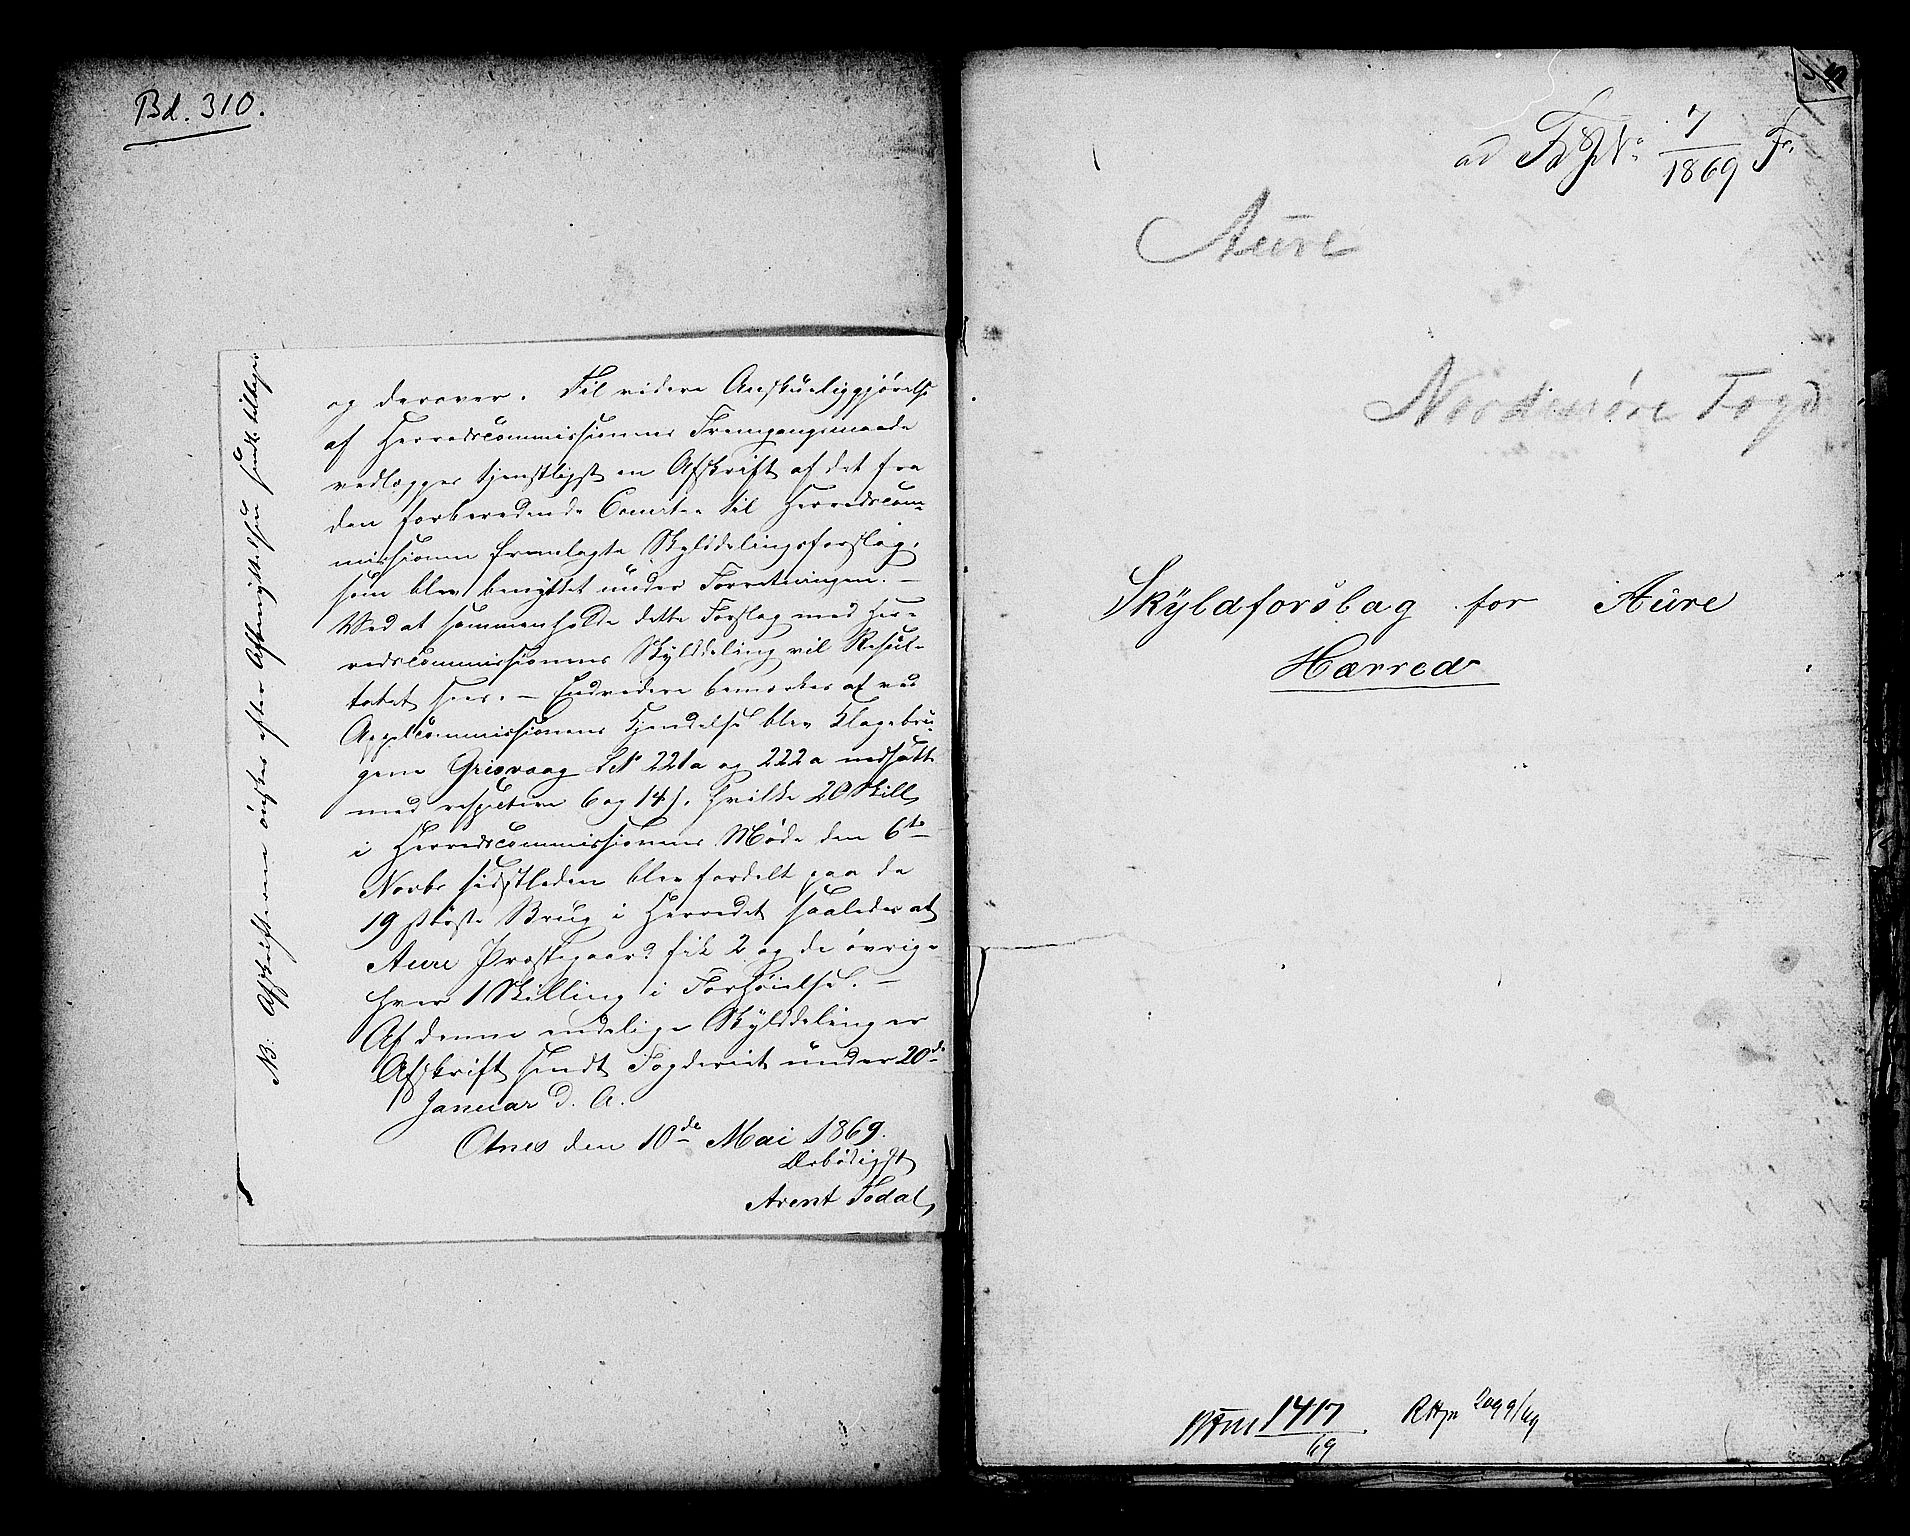 Bd. 310.
og derover. Til videre Anskueliggjørelse
af Herredscommissionens Fremgangsmaade
vedlægges tjenstligst en Afskrift af det fra
den forberedende Comitee til Herredscom-
missionen fremlagte Skylddelingsforslag,
som blev benyttet under Forretningen. —
Ved at sammenholde dette Forslag med Her-
redscommissionens Skylddeling vil Resul-
tatet sees. — Endvidere bemærkes at ved
Appelcommissionens Kjendelse blev Klagebru-
gene Grisvaag LNo 221a og 222a nedsatte
med respective 6 og 14 s. hvilke 20 Skill
i Herredscommissionens Møde den 6te
Novbr sidstleden blev fordelt paa de
19 største Brug i Herredet saaledes at
Aure Præstegaard fik 2 og de øvrige
hver 1 Skilling i Forhøielse. —
Af denne endelige Skylddeling er
Afskrift sendt Fogderiet under 20de
Januar d. A.
Otnes den 10de Mai 1869.
Ærbødigst
Arent Todal
NB: Afskrifterne ønskes efter Afbenyttelsen sendt tilbage.
ad 7/1869 F.
Aure
Nordmøre Fogd
Skyldforslag for Aure
Herred
1417/69